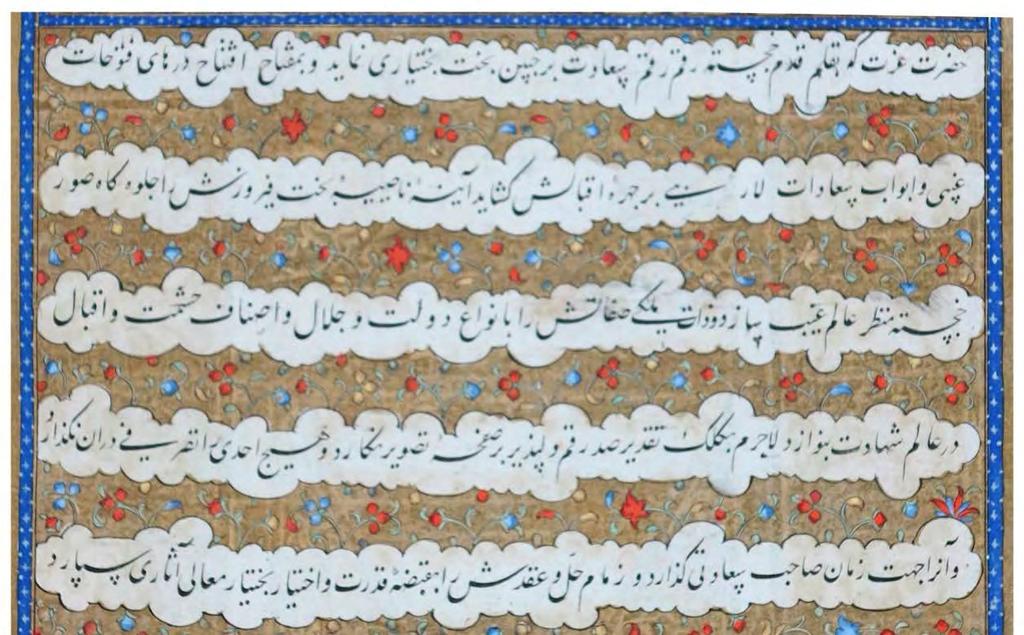 حضرت عزت که بقلم قدم خجسته رقم رقم سعادت بر جبین بخت بختیاری نماید و بمفتاح افتتاح درهای فتوحات
غیبی و ابواب سعادات لاریبی بر چهره اقبالش کشاید آینهٔ ناصیهٔ بخت فیروزش را جلوه کاه صور
خجسته منظر عالم غیب سازد و ذات ملکی صفاتش را بانواع دولت و جلال و اصناف حشمت و اقبال
در عالم شهادت بنوازد لاجرم بکلک تقدیر صد رقم دلپذیر بر صفحهٔ تصویر نکارد و هیچ احدی را تصرفی در ان نکذارد
و آنرا جهت زمان صاحب سعادتی کذارد و زمام حل و عقدش را بقبضهٔ قدرت و اختیار بختیار معالی آثاری سپارد